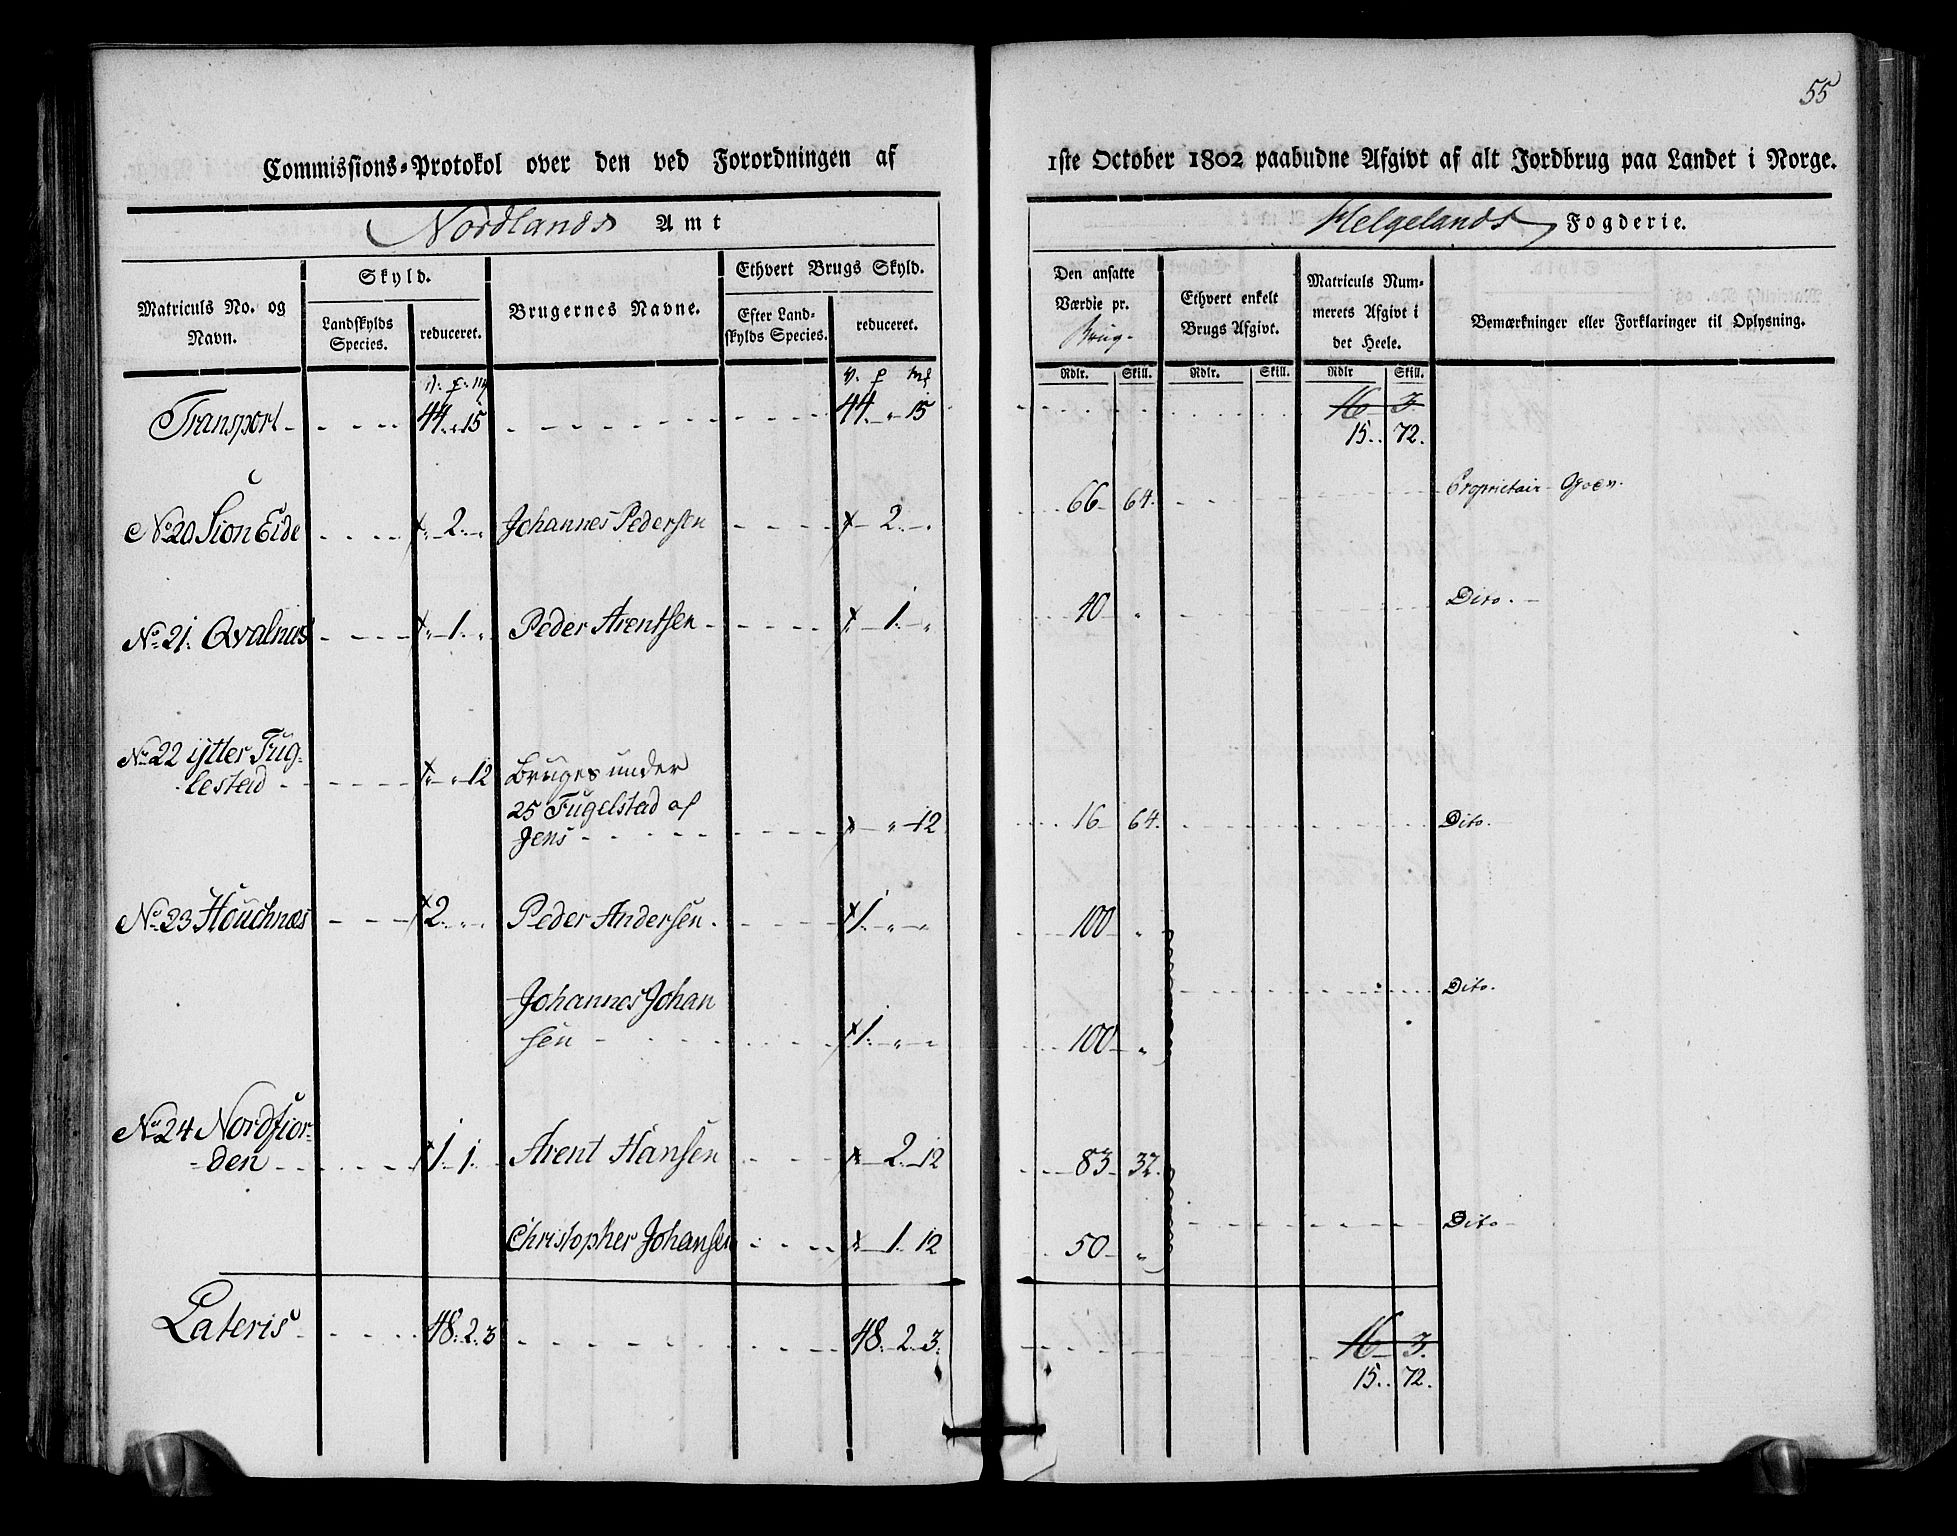 55
Commissions-Protokol over den ved Forordningen af 1ste October 1802 paabudne Afgivt af alt Jordbrug paa Landet i Norge.
Nordlands Amt Helgelands Fogderie.
Matriculs No. og Navn.
Skyld.
Landskylds Species.
reduceret.
Brugernes Navne.
Ethvert Brugs Skyld.
Efter Landskylds Species.
reduceret.
Den ansatte Værdie pr. Brug.
Ethvert enkelt Brugs Afgivt.
Matriculs Nummerets Afgivt i det Heele.
Bemærkninger eller Forklaringer til Oplysning.
Rdlr. Skill. Rdlr. Skill. Rdlr Skill.
V. P. M V. P M
Transport 44. " 15 44. " 15 16 3.
15. 72.
No 20 Sion Eide 2. " Johannes Pedersen 2. " 66 64. Proprietair
No 21. Qvalnæs 1. " Peder Arentsen 1. " 40 " Dito.
No 22 ytter Fug-
lestad " 12 Bruges under
25 Fugelstad af
Jens " 12 16 64. Dito.
No 23 Houchnæs 2. " " Peder Andersen 1. " " 100 "
Johannes Johan
sen 1. " " 100 " Dito.
No 24 Nordfior-
den 1. 1. Arent Hansen 2. 12 83 32.
Christopher Johansen 1. 12 50 " Dito
Lateris 48. 2. 3 48. 2. 3. 16 3.
15. 72.